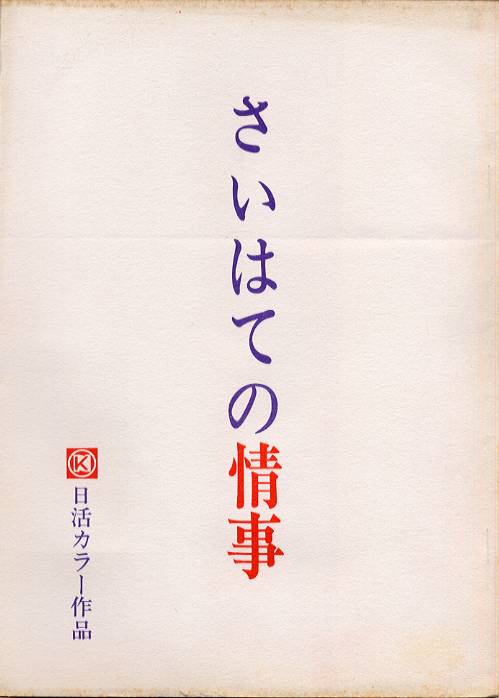 さいはての情事
日活カラー作品